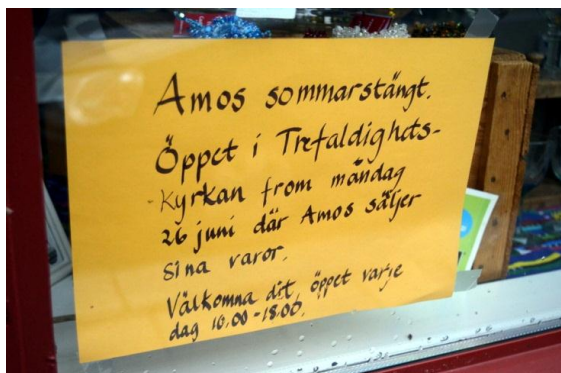 Amos sommarstängt.
Öppet i Trefaldighets-
kyrkan from måndag
26 juni där Amos säljer
sina varor.
Välkomna dit, öppet varje
dag 10.00-18.00.